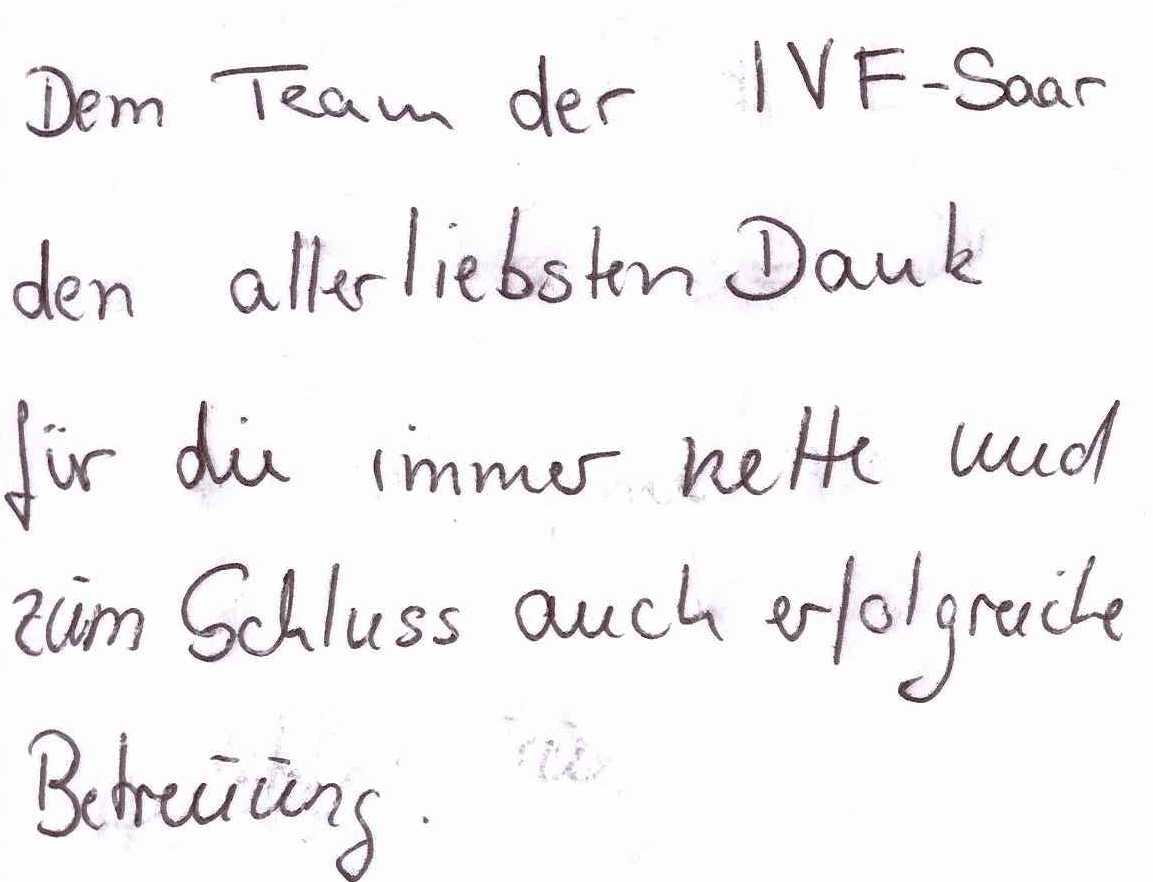 Dem Team der IVF-Saar
den allerliebsten Dank
für die immer nette und
zum Schluss auch erfolgreiche
Betreuung.